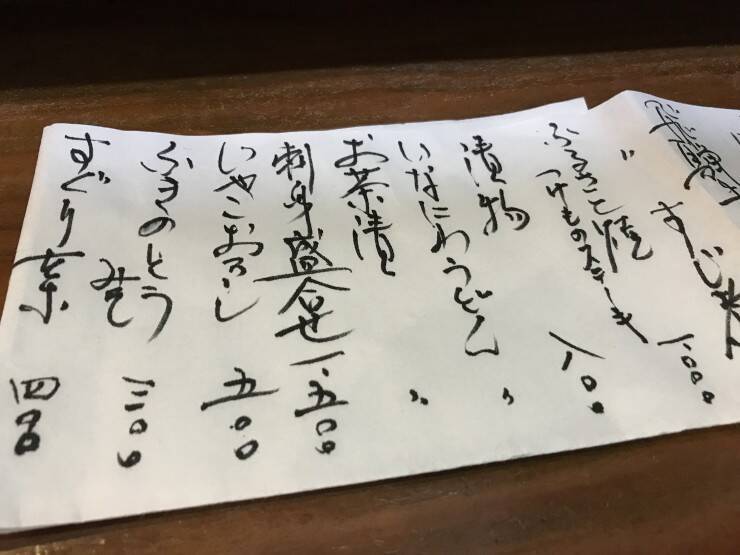 飛騨
〃 すじ煮 一、〇〇〇
ふるさと焼
つけものステーキ 八〇〇
漬物 〃
いなにわうどん 〃
お茶漬
刺身盛合せ 一、五〇〇
いかおろし 五〇〇
ふきのとう
みそ 三〇〇
すぐり菜 四〇〇